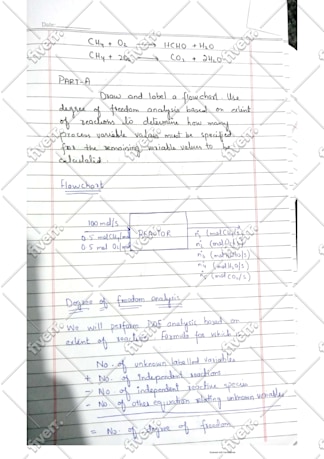 Date:
CH4 + O2 → HCHO + H2O
CH4 + 2O2 → CO2 + 2H2O
PART-A
Draw and label a flowchart. Use
degree of freedom analysis based on extent
of reactions to determine how many
process variable values must be specified
for the remaining variable values to be
calculated.
Flowchart
100 mol/s
0.5 mol CH4/mol
0.5 mol O2/mol
REACTOR
n1 (mol CH4/s)
n2 (mol O2/s)
n3 (mol HCHO/s)
n4 (mol H2O/s)
n5 (mol CO2/s)
Degree of freedom analysis
We will perform DOF analysis based on
extent of reaction. Formula for which is
No. of unknown labelled variables
+ No. of independent reactions
- No. of independent reactive species
- No. of other equation relating unknown variables
= No. of degree of freedom
fiverr.